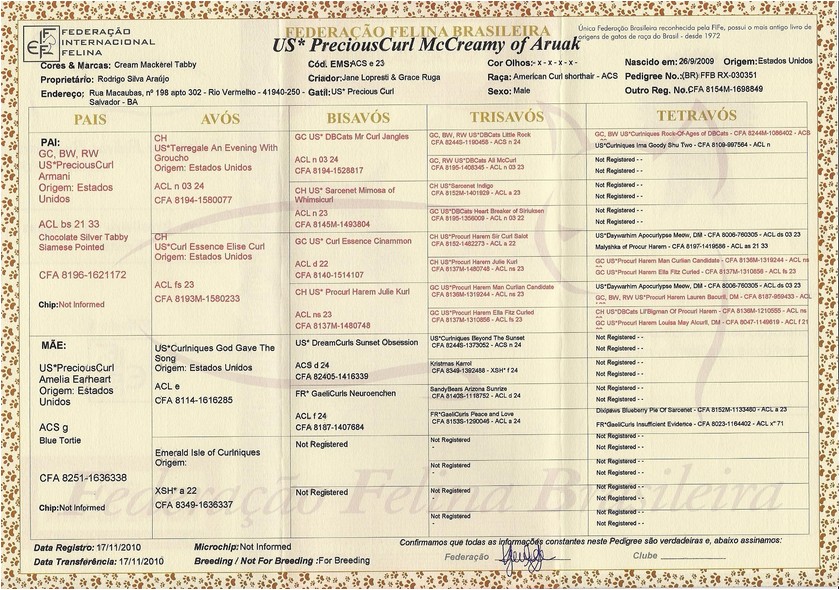 FEDERAÇÃO
INTERNACIONAL
FELINA
FIFe
FEDERAÇÃO FELINA BRASILEIRA
US* PreciousCurl McCreamy of Aruak
Única Federação Brasileira reconhecida pela FIFe, possui o mais antigo livro de
origens de gatos de raça do Brasil - desde 1972
Cores & Marcas: Cream Mackerel Tabby
Cód. EMS:ACS e 23
Cor Olhos:- x - x - x -
Nascido em: 26/9/2009 Origem:Estados Unidos
Proprietário: Rodrigo Silva Araújo
Criador:Jane Lopresti & Grace Ruga
Raça: American Curl shorthair - ACS
Pedigree No.:(BR) FFB RX-030351
Endereço: Rua Macaubas, nº 198 apto 302 - Rio Vermelho - 41940-250 -
Salvador - BA
Gatil:US* Precious Curl
Sexo: Male
Outro Reg. No.CFA 8154M-1698849
PAIS
AVÓS
BISAVÓS
TRISAVÓS
TETRAVÓS
PAI:
GC, BW, RW
US*PreciousCurl
Armani
Origem: Estados
Unidos
ACL bs 21 33
Chocolate Silver Tabby
Siamese Pointed
CFA 8196-1621172
Chip:Not Informed
MÃE:
US*PreciousCurl
Amelia Earheart
Origem: Estados
Unidos
ACS g
Blue Tortie
CFA 8251-1636338
Chip:Not Informed
CH
US*Terregale An Evening With
Groucho
Origem: Estados Unidos
ACL n 03 24
CFA 8194-1580077
CH
US*Curl Essence Elise Curl
Origem: Estados Unidos
ACL fs 23
CFA 8193M-1580233
US*Curlniques God Gave The
Song
Origem: Estados Unidos
ACL e
CFA 8114-1616285
Emerald Isle of Curlniques
Origem:
XSH* a 22
CFA 8349-1636337
GC US* DBCats Mr Curl Jangles
ACL n 03 24
CFA 8194-1528817
CH US* Sarcenet Mimosa of
Whimsicurl
ACL n 23
CFA 8145M-1493804
GC US* Curl Essence Cinammon
ACL d 22
CFA 8140-1514107
CH US* Procurl Harem Julie Kurl
ACL ns 23
CFA 8137M-1480748
US* DreamCurls Sunset Obsession
ACS d 24
CFA 82405-1416339
FR* GaeliCurls Neuroenchen
ACL f 24
CFA 8187-1407684
Not Registered
Not Registered
GC, BW, RW US*DBCats Little Rock
CFA 8244S-1190458 - ACS n 24
GC, RW US*DBCats Ali McCurl
CFA 8195-1408345 - ACL n 03 23
CH US*Sarcenet Indigo
CFA 8152M-1401929 - ACL a 23
GC US*DBCats Heart Breaker of Siriuksen
CFA 8195-1356009 - ACL n 03 22
CH US*Procurl Harem Sir Curl Salot
CFA 8152-1482273 - ACL a 22
CH US*Procurl Harem Julie Kurl
CFA 8137M-1480748 - ACL ns 23
CH US*Procurl Harem Man Curlian Candidate
CFA 8136M-1319244 - ACL ns 23
CH US*Procurl Harem Ella Fitz Curled
CFA 8137M-1310856 - ACL fs 23
US*Curlniques Beyond The Sunset
CFA 8244S-1373052 - ACS n 24
Kristmas Karrol
CFA 8349-1392488 - XSH* f 24
SandyBears Arizona Sunrize
CFA 8140S-1118752 - ACL d 24
FR*GaeliCurls Peace and Love
CFA 8153S-1290046 - ACL a 24
Not Registered
-
Not Registered
-
Not Registered
-
Not Registered
-
GC, BW, RW US*Curlniques Rock-Of-Ages of DBCats - CFA 8244M-1086402 - ACS
US*Curlniques Ima Goody Shu Two - CFA 8109-997564 - ACL n
Not Registered - -
Not Registered - -
Not Registered - -
Not Registered - -
Not Registered - -
Not Registered - -
US*Daywarhim Apocurlypse Meow, DM - CFA 8006-760305 - ACL ds 03 23
Malyshka of Procur Harem - CFA 8197-1419586 - ACL as 21 33
GC US*Procurl Harem Man Curlian Candidate - CFA 8136M-1319244 - ACL ns
GC US*Procurl Harem Ella Fitz Curled - CFA 8137M-1310856 - ACL fs 23
US*Daywarhim Apocurlypse Meow, DM - CFA 8006-760305 - ACL ds 03 23
GC, BW, RW US*Procurl Harem Lauren Bacurll, DM - CFA 8187-959433 - ACL
CH US*DBCats Lil'Bigman Of Procurl Harem - CFA 8136M-1210555 - ACL ns
GC US*Procurl Harem Louisa May Alcurll, DM - CFA 8047-1149619 - ACL f 21
Not Registered - -
Not Registered - -
Not Registered - -
Not Registered - -
Not Registered - -
Not Registered - -
Dixipaws Blueberry Pie Of Sarcenet - CFA 8152M-1133480 - ACL a 23
FR*GaeliCurls Insufficient Evidence - CFA 8023-1164402 - ACL x* 71
Not Registered - -
Not Registered - -
Not Registered - -
Not Registered - -
Not Registered - -
Not Registered - -
Not Registered - -
Not Registered - -
Federação Felina Brasileira
Data Registro: 17/11/2010
Microchip:Not Informed
Confirmamos que todas as informações constantes neste Pedigree são verdadeiras e, abaixo assinamos:
Data Transferência: 17/11/2010
Breeding / Not For Breeding :For Breeding
Federação
Clube